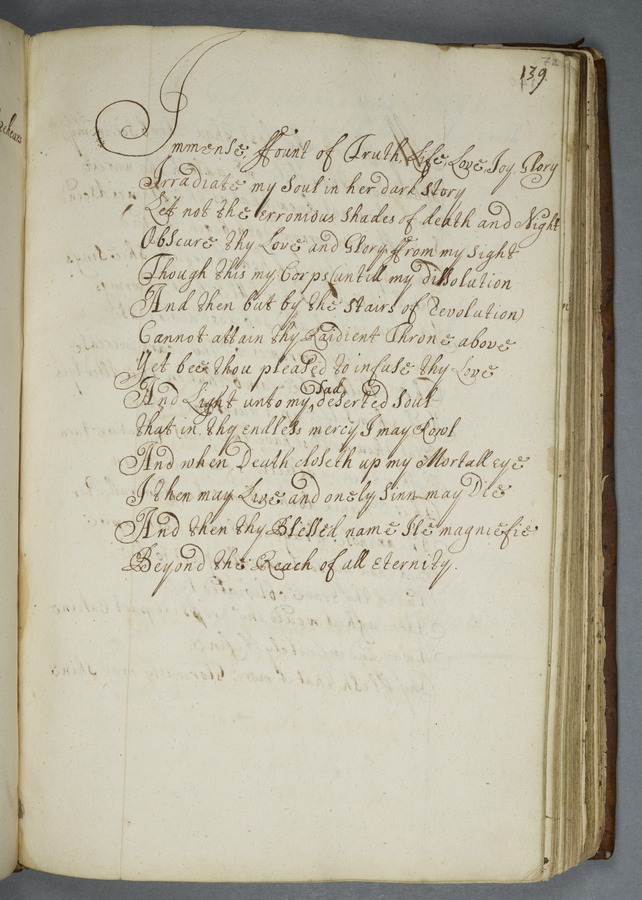 72
139
Immense, ffount of Truth, Life, Love, Joy, Glory
Irradiate my Soul in her dark story
Let not the erronious shades of death and Night
Obscure thy Love and Glory ffrom my sight
Though this my Corps (untill my disolution
And then but by the stairs of Revolution)
Cannot attain thy Raidient Throne above
Yet bee thou pleased to infuse thy Love
And Light unto my Sad deserted Soul
that in thy endless mercy I may Rowl
And when Death closeth up my Mortall eye
I then may Live and onely Sinn may Die
And then thy Blessed name Ile magniefie
Beyond the Reach of all eternity.